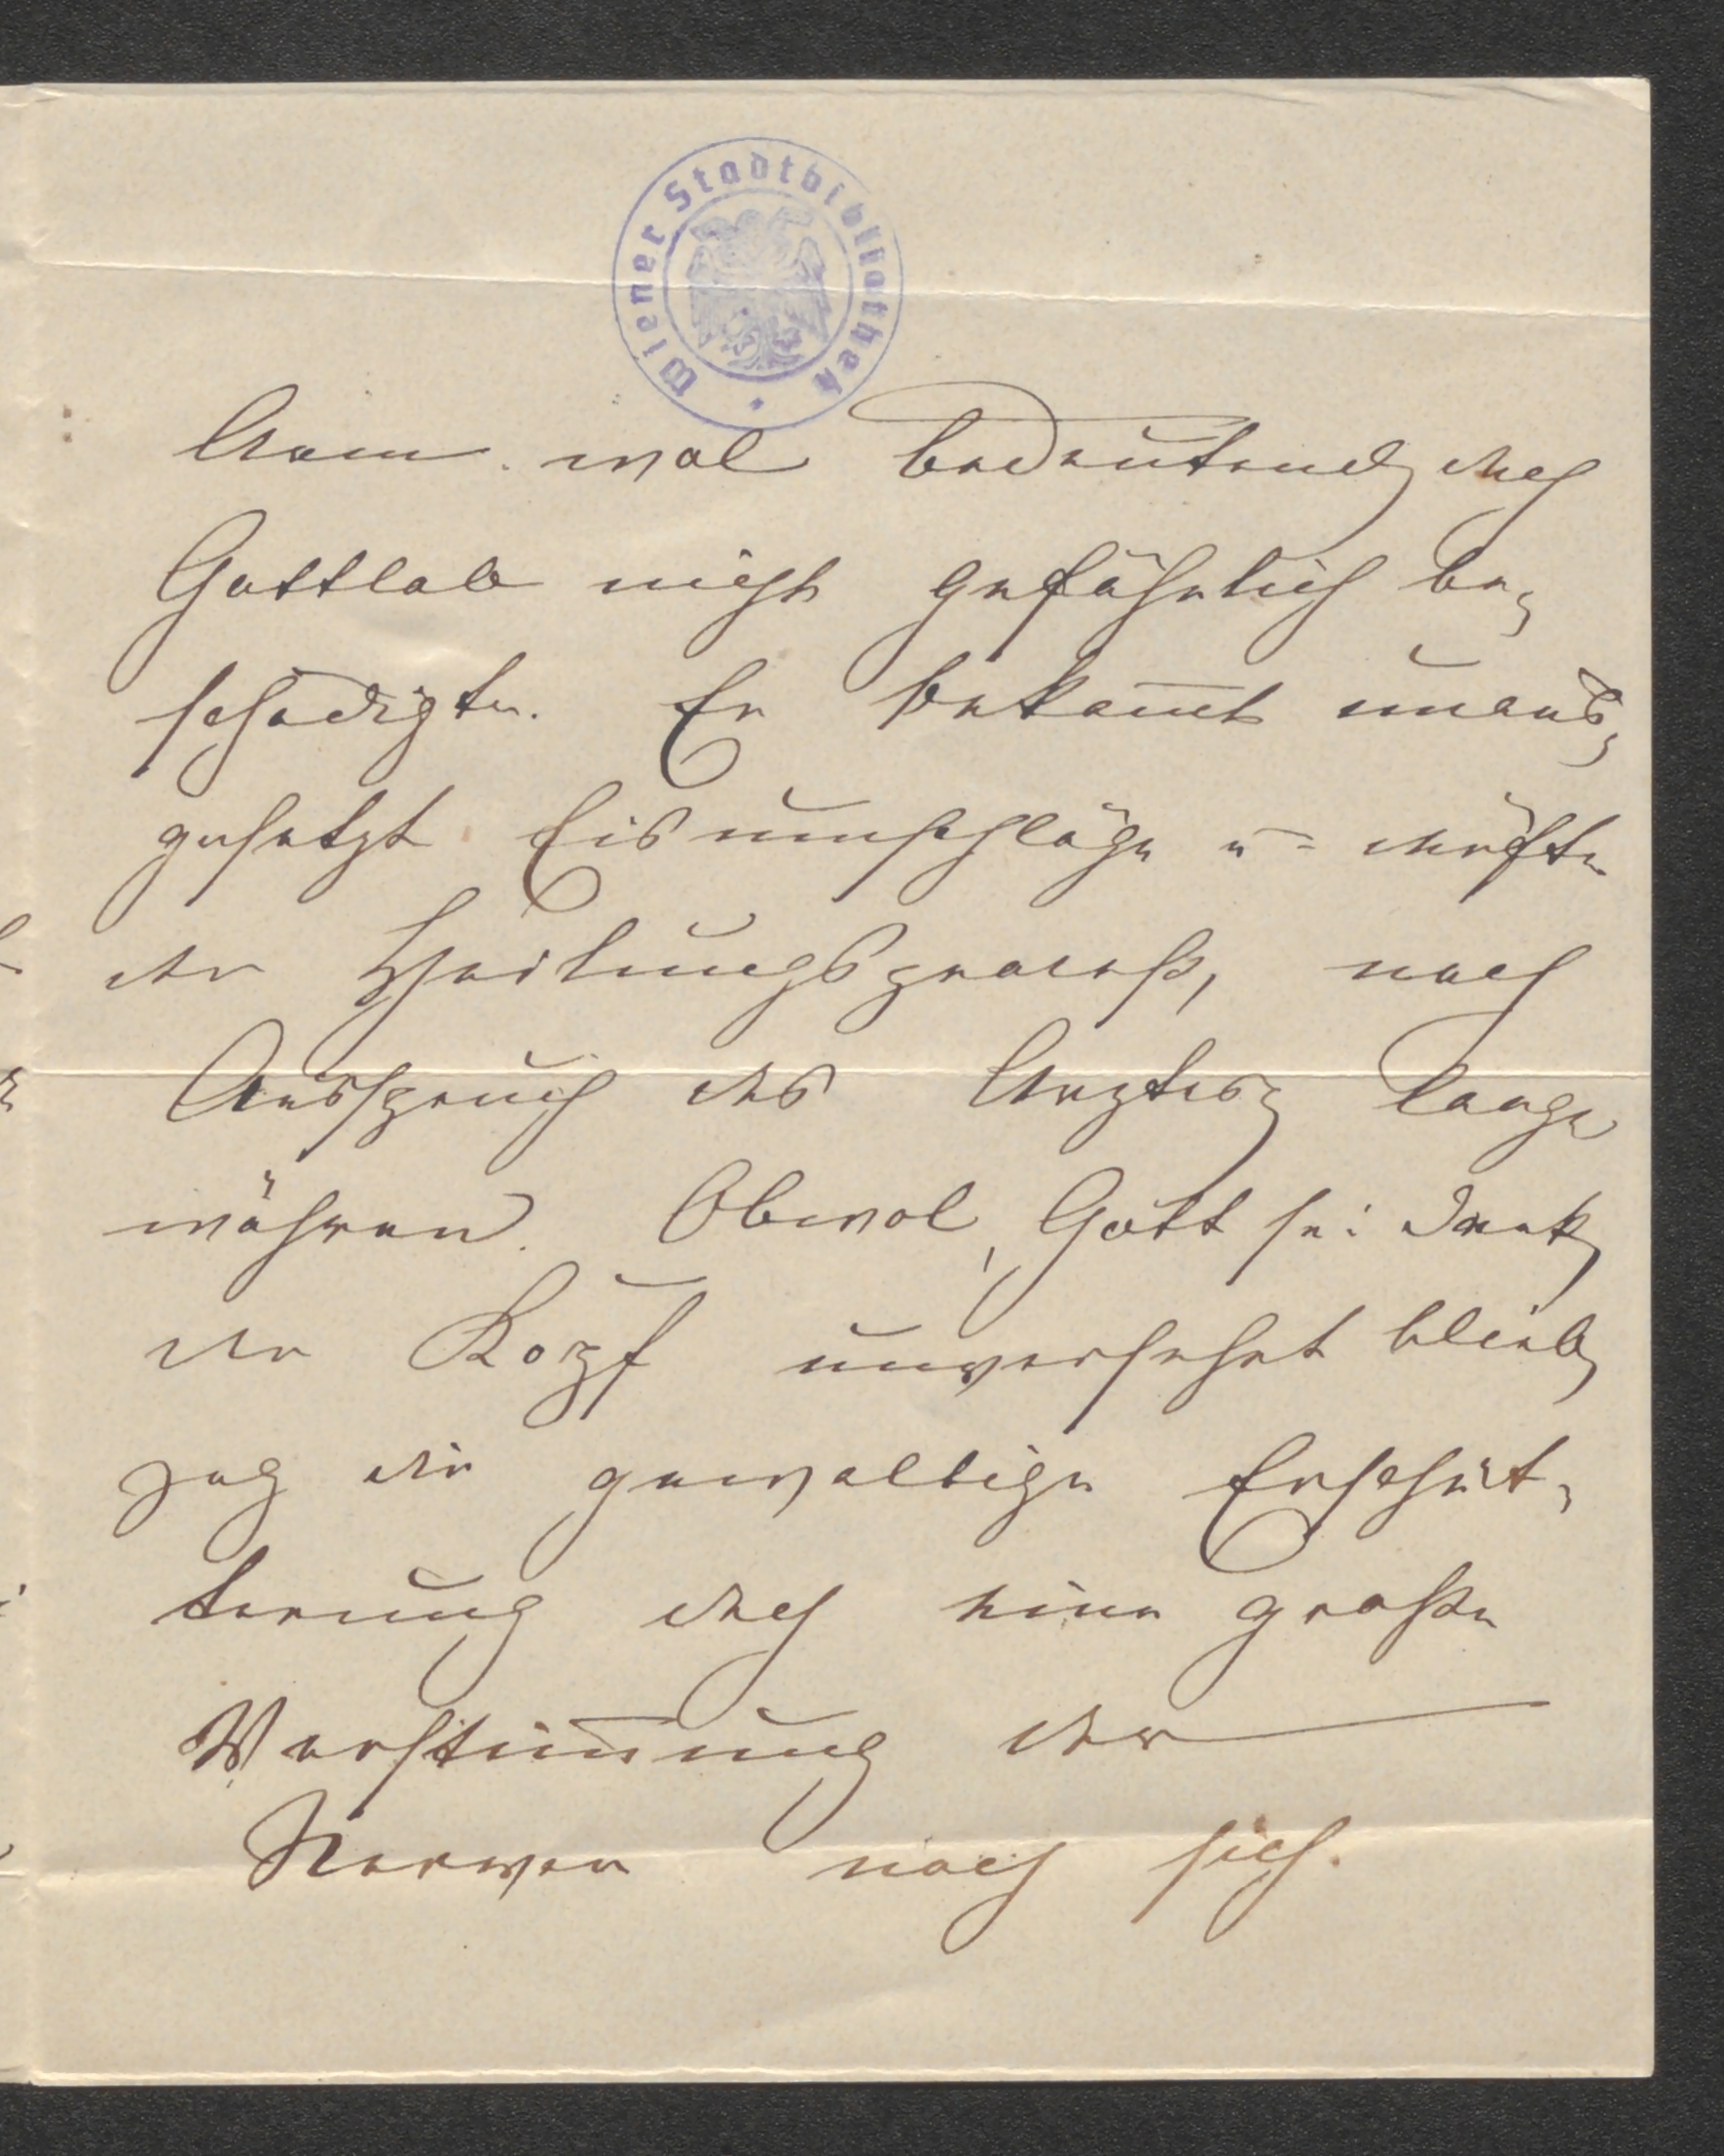 Wiener Stadtbibliothek
Arm wol bedeutend, doch
Gottlob nicht gefährlich be-
schädigte. Er bekom̄t unaus-
gesetzt Eisumschläge u. dürfte
der Heilungsproceß, nach
Ausspruch des Arztes, lange
währen. Obwol, Gott sei Dank,
der Kopf unversehrt blieb,
zog die gewaltige Erschüt-
terung doch eine große
Verstim̄ung der
Nerven nach sich.